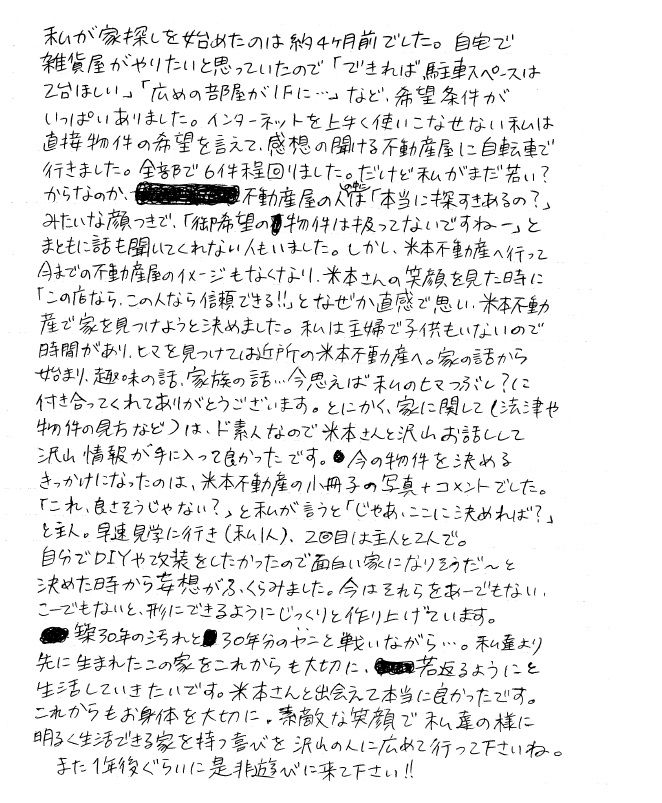 私が家探しを始めたのは約4ヶ月前でした。自宅で
雑貨屋がやりたいと思っていたので「できれば駐車スペースは
2台ほしい」「広めの部屋が1Fに…」など、希望条件が
いっぱいありました。インターネットを上手く使いこなせない私は
直接物件の希望を言えて、感想の聞ける不動産屋に自転車で
行きました。全部で6件程回りました。だけど私がまだ若い?
からなのか、不動産屋の人は「本当に探すきあるの?」
みたいな顔つきで、「御希望の物件は扱ってないですねー」と
まともに話も聞いてくれない人もいました。しかし、米本不動産へ行って
今までの不動産屋のイメージもなくなり、米本さんの笑顔を見た時に
「この店なら、この人なら信頼できる!!」となぜか直感で思い、米本不動
産で家を見つけようと決めました。私は主婦で子供もいないので
時間があり、ヒマを見つけては近所の米本不動産へ。家の話から
始まり、趣味の話、家族の話…今思えば私のヒマつぶし?に
付き合ってくれてありがとうございます。とにかく、家に関して(法津や
物件の見方など)は、ド素人なので米本さんと沢山お話しして
沢山情報が手に入って良かったです。今の物件を決める
きっかけになったのは、米本不動産の小冊子の写真+コメントでした。
「これ、良さそうじゃない?」と私が言うと「じゃあ、ここに決めれば?」
と主人。早速見学に行き(私1人)、2回目は主人と2人で。
自分でDIYや改装をしたかったので面白い家になりそうだ〜と
決めた時から妄想がふくらみました。今はそれらをあーでもない、
こーでもないと、形にできるようにじっくりと作り上げています。
築30年の汚れと30年分のヤニと戦いながら…。私達より
先に生まれたこの家をこれからも大切に、若返るようにと
生活していきたいです。米本さんと出会えて本当に良かったです。
これからもお身体を大切に。素敵な笑顔で私達の様に
明るく生活できる家を持つ喜びを沢山の人に広めて行って下さいね。
また1年後ぐらいに是非遊びに来て下さい!!